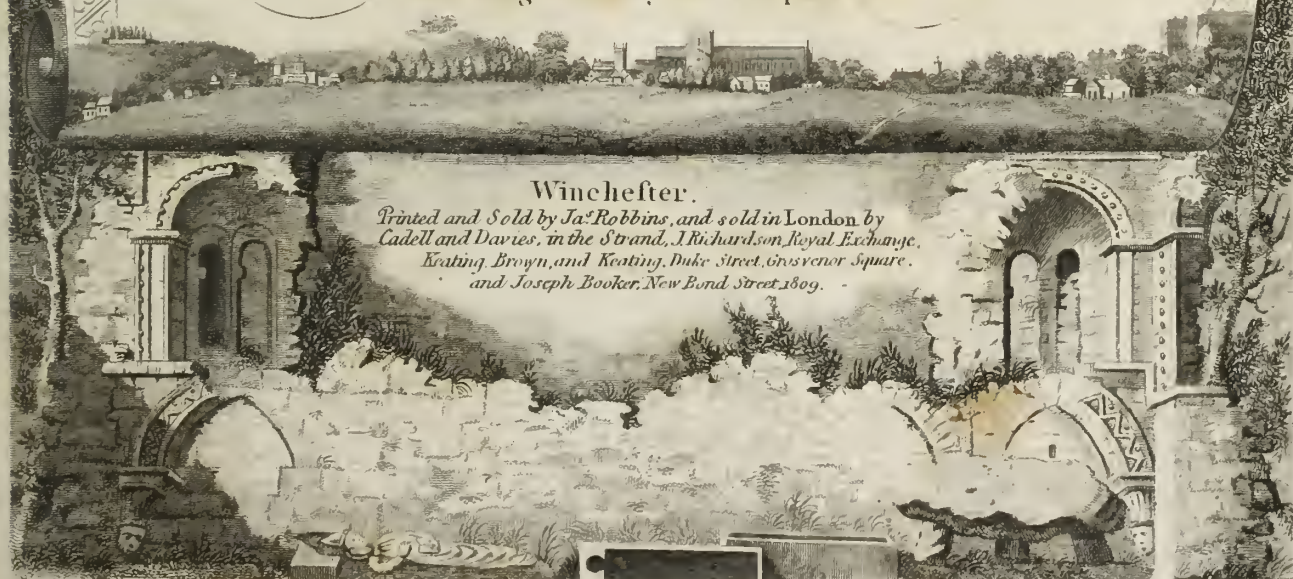 Wincheſter.
Printed and Sold by Jaˢ. Robbins, and sold in London by
Cadell and Davies, in the Strand, J. Richardson, Royal Exchange,
Keating, Brown, and Keating, Duke Street, Grosvenor Square.
and Joseph Booker, New Bond Street, 1809.